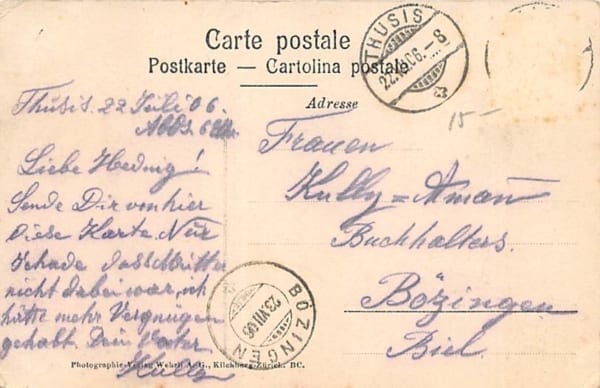 Carte postale
Postkarte — Cartolina postale
Adresse
THUSIS
22.VII.06.-8
15-
Thusis. 22 Juli 06.
Abds. 6 Uhr.
Liebe Hedwig!
Sende Dir von hier
diese Karte. Nur
Schade dass Mutter
nicht dabei war, ich
hätte mehr Vergnügen
gehabt. Dein Vater
Kully
Frauen
Kully=Aman
Buchhalters.
Bözingen
Biel.
BÖZINGEN
23.VII.06
Photographie-Verlag Wehrli A. G., Kilchberg-Zürich. BC.